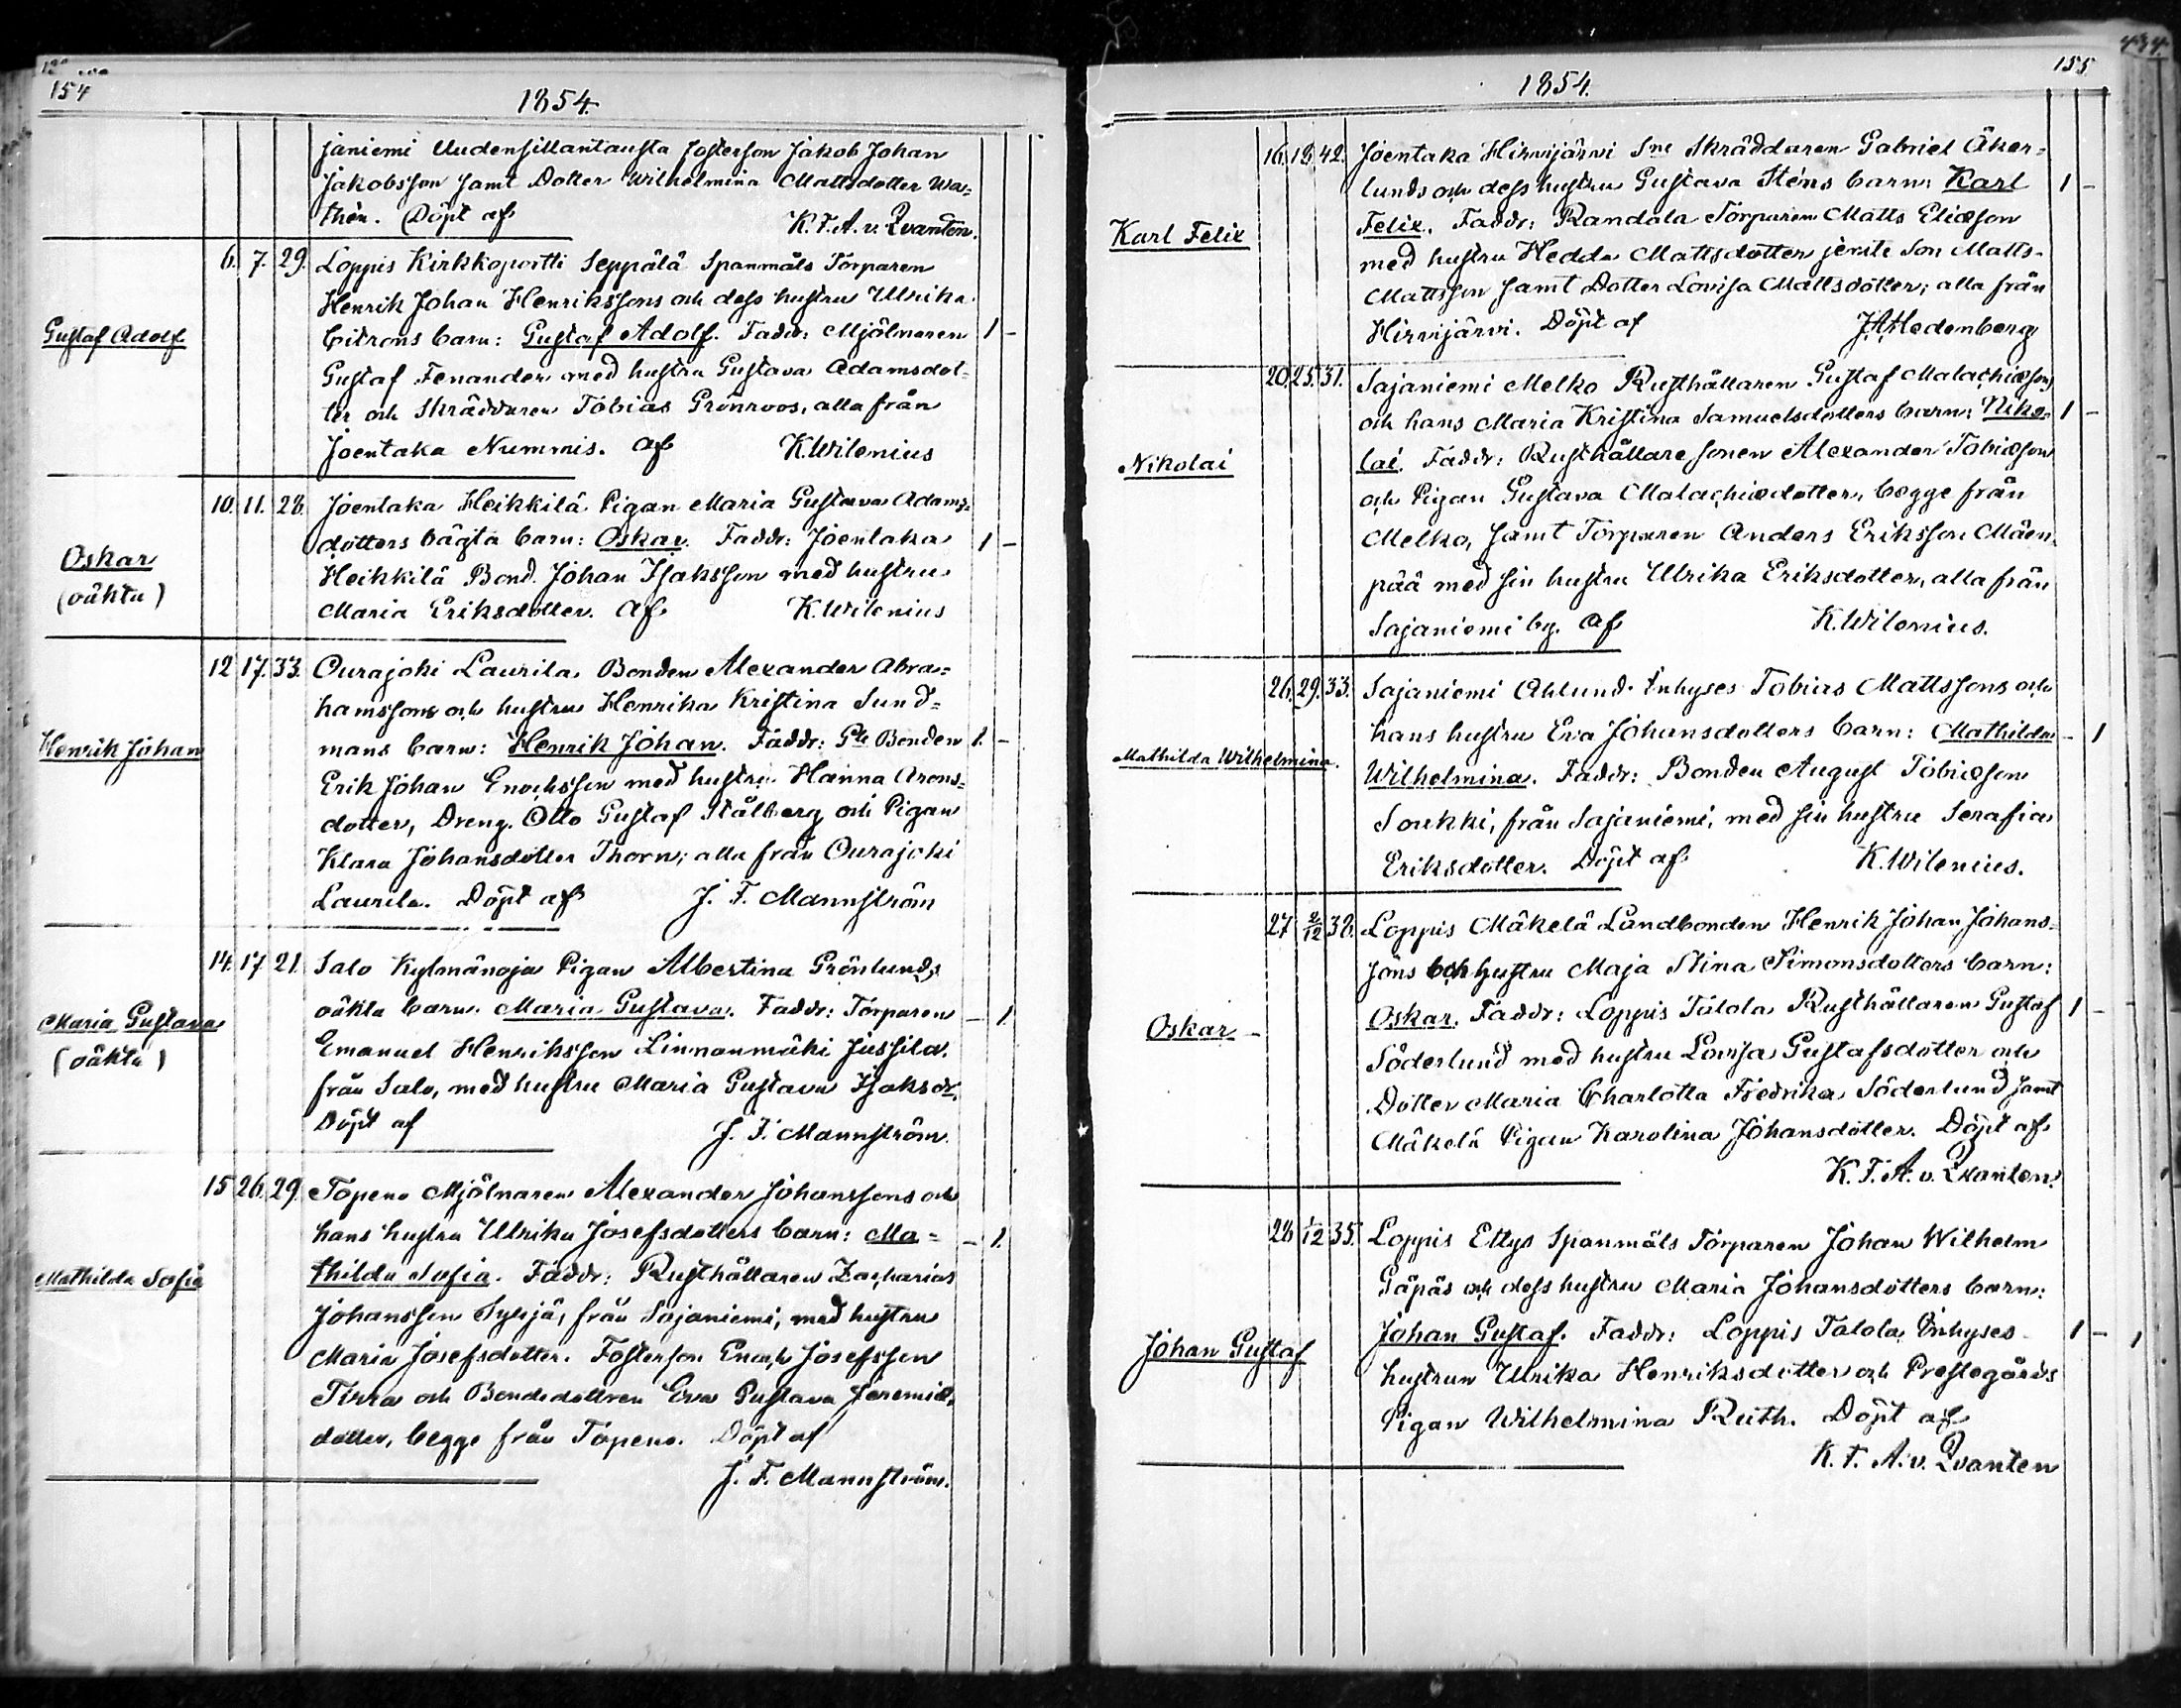 154
1854.
janiemi Uudensillantausta fosterson Jakob Johan
Jakobsson samt Dotter Wilhelmina Mattsdotter Wa=
thén. Döpt af K. F. A. v. Qvanten.
Gustaf Adolf
6. 7. 29. Loppis Kirkkoportti Seppälä Spanmåls Torparen
Henrik Johan Henrikssons och dess hustru Ulrika
Citrons barn: Gustaf Adolf. Faddr: Mjölnaren 1 –
Gustaf Fenander med hustru Gustava Adamsdot=
ter och Skräddaren Tobias Grönroos, alla från
Joentaka Nummis. af K. Wilenius
Oskar
(oäkta)
10. 11. 28. Joentaka Heikkilä Pigan Maria Gustava Adams=
dotters oägta barn: Oskar. Faddr: Joentaka 1 –
Heikkilä Bond. Johan Isaksson med hustru
Maria Eriksdotter. af K. Wilenius
Henrik Johan
12 17. 33. Ourajoki Laurila Bonden Alexander Abra=
hamssons och hustru Henrika Kristina Sund=
mans barn: Henrik Johan. Faddr: Bonden 1. –
Erik Johan Enochsson med hustru Hanna Arons=
dotter, Dreng. Otto Gustaf Stålberg och Pigan
Klara Johansdotter Thorn; alla från Ourajoki
Laurila. Döpt af J. F. Mannström
Maria Gustava
(oäkta)
14. 17 21. Salo Kylmänoja Pigan Albertina Grönlunds
oäkta barn. Maria Gustava. Faddr: Torparen – 1.
Emanuel Henriksson Linnanmäki Jussila
från Salo, med hustru Maria Gustava Isaksdr.
Döpt af J. F. Mannström.
Mathilda Sofia
15 26. 29. Topeno Mjölnaren Alexander Johanssons och
hans hustru Ulrika Josefsdotters barn: Ma= – 1.
thilda Sofia. Faddr: Rusthållaren Zacharias
Johansson Syrjä, från Sajaniemi, med hustru
Maria Josefsdotter. Fosterson Enoch Josefsson
Tirra och Bondedottren Eva Gustava Jeremiæ
dotter, begge från Topeno. Döpt af
J. F. Mannström.
434.
155.
1854.
Karl Felix
16. 18. 42. Joentaka Hirvijärvi Skräddaren Gabriel Åker=
lunds och dess hustru Gustava Sténs barn: Karl 1 –
Felix. Faddr: Randala Torparen Matts Eliæson
med hustru Hedda Mattsdotter jemte Son Matts
Mattsson samt Dotter Lovisa Mattsdotter; alla från
Hirvijärvi. Döpt af J. A. Hedenberg
Nikolai
20. 25. 31. Sajaniemi Melko Rusthållaren Gustaf Malachiæson
och hans Maria Kristina Samuelsdotters barn: Niko= 1 –
lai. Faddr: Rusthållare sonen Alexander Tobiæson
och Pigan Gustava Malachiædotter, begge från
Melko, samt Torparen Anders Eriksson Mäen=
pää med sin hustru Ulrika Eriksdotter, alla från
Sajaniemi by. af K. Wilenius.
Mathilda Wilhelmina.
26. 29. 33. Sajaniemi Ahlund Inhyses Tobias Mattssons och
hans hustru Eva Johansdotters barn: Mathilda – 1
Wilhelmina. Faddr: Bonden August Tobiæson
Soukki, från Sajaniemi, med sin hustru Serafia
Eriksdotter. Döpt af K. Wilenius.
Oskar –
27 2/12 38. Loppis Mäkelä Landbonden Henrik Johan Johans=
sons och hustru Maja Stina Simonsdotters barn:
Oskar. Faddr: Loppis Talola Rusthållaren Gustaf 1 –
Söderlund med hustru Lovisa Gustafsdotter och
Dotter Maria Charlotta Fredrika Söderlund samt
Mäkelä Pigan Karolina Johansdotter. Döpt af
K. F. A. v. Qvanten.
Johan Gustaf
28 1/12 35. Loppis Ettys Spanmåls Torparen Johan Wilhelm
Gåpås och dess hustru Maria Johansdotters barn:
Johan Gustaf. Faddr: Loppis Talola Inhyses 1 –
hustrun Ulrika Henriksdotter och Prestegårds
Pigan Wilhelmina Ruth. Döpt af
K. F. A. v. Qvanten